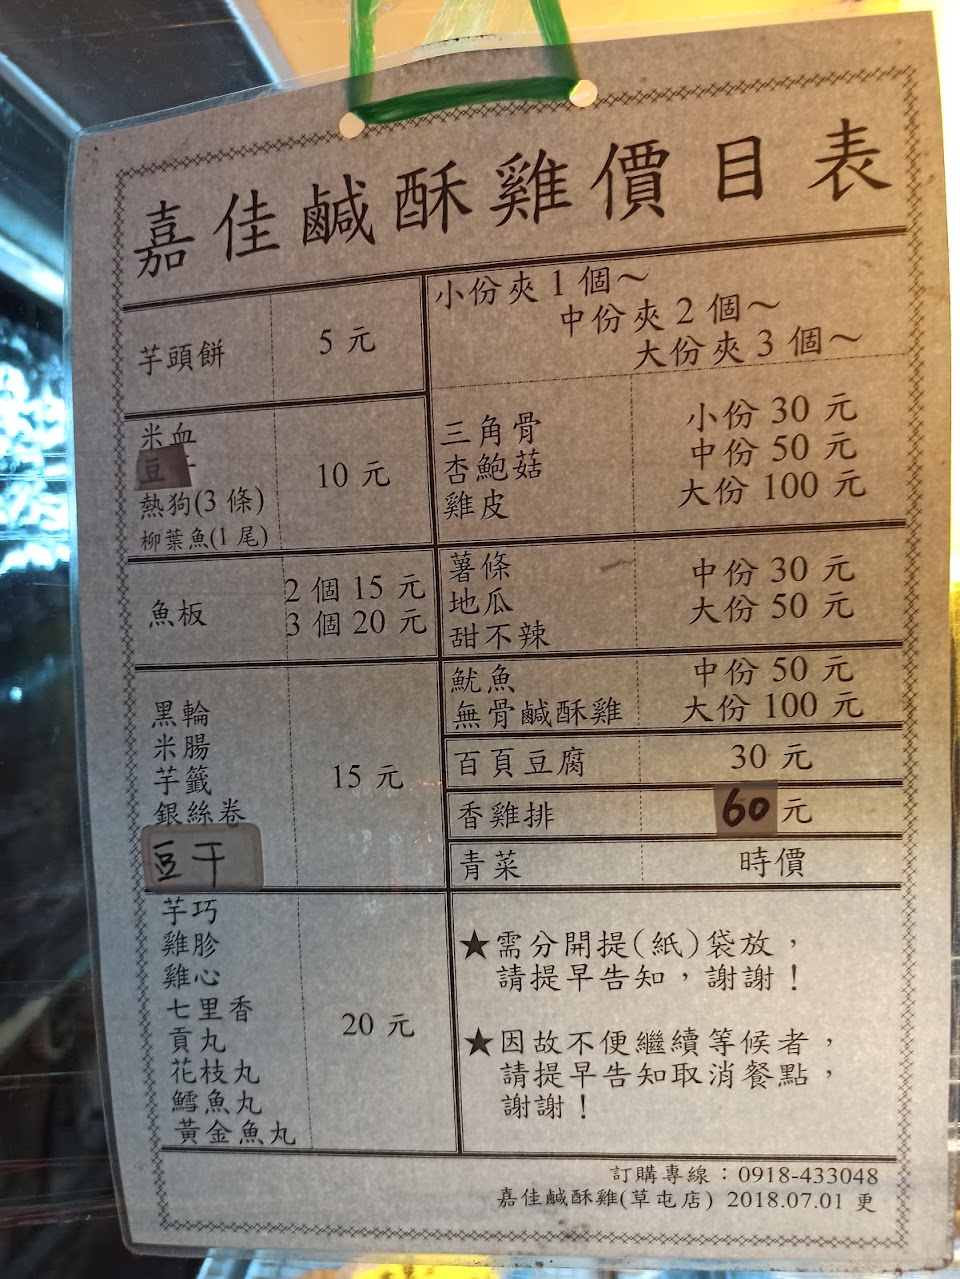 嘉佳鹹酥雞價目表
芋頭餅 5 元
米血
豆
熱狗(3 條)
柳葉魚(1 尾)
10 元
魚板
2 個 15 元
3 個 20 元
黑輪
米腸
芋籤
銀絲卷
豆干
15 元
芋巧
雞胗
雞心
七里香
貢丸
花枝丸
鱈魚丸
黃金魚丸
20 元
小份夾 1 個～
中份夾 2 個～
大份夾 3 個～
三角骨
杏鮑菇
雞皮
小份 30 元
中份 50 元
大份 100 元
薯條
地瓜
甜不辣
中份 30 元
大份 50 元
魷魚
無骨鹹酥雞
中份 50 元
大份 100 元
百頁豆腐 30 元
香雞排 60 元
青菜 時價
★需分開提(紙)袋放，
請提早告知，謝謝！
★因故不便繼續等候者，
請提早告知取消餐點，
謝謝！
訂購專線：0918-433048
嘉佳鹹酥雞(草屯店) 2018.07.01 更